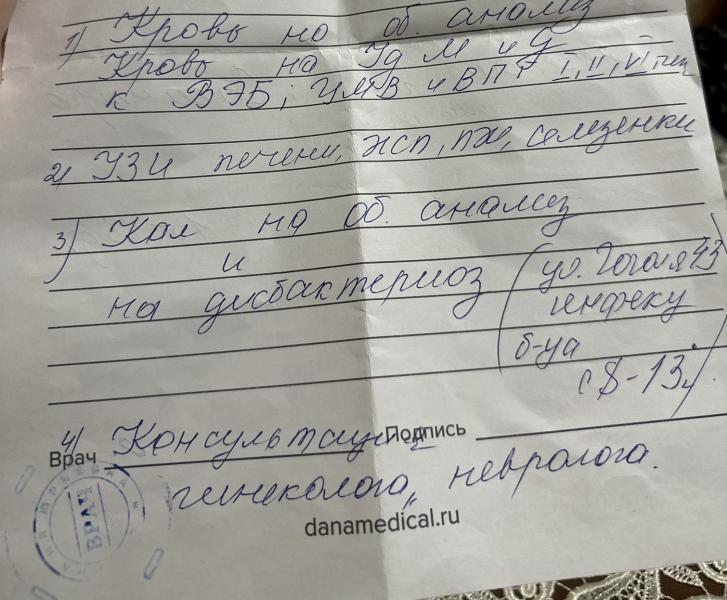 1) Кровь на об. анализ
Кровь на Jg M и G
к ВЭБ, ЦМВ и ВПГ I, II, VI
2) УЗИ печени, жсп, пж, селезенки
3) Кал на об. анализ
и
на дисбактериоз
(ул. Гоголя 43
инфекц
б-ца
с 8-13)
4) Консультация
Врач Подпись
гинеколога, невролога.
danamedical.ru
ВРАЧ